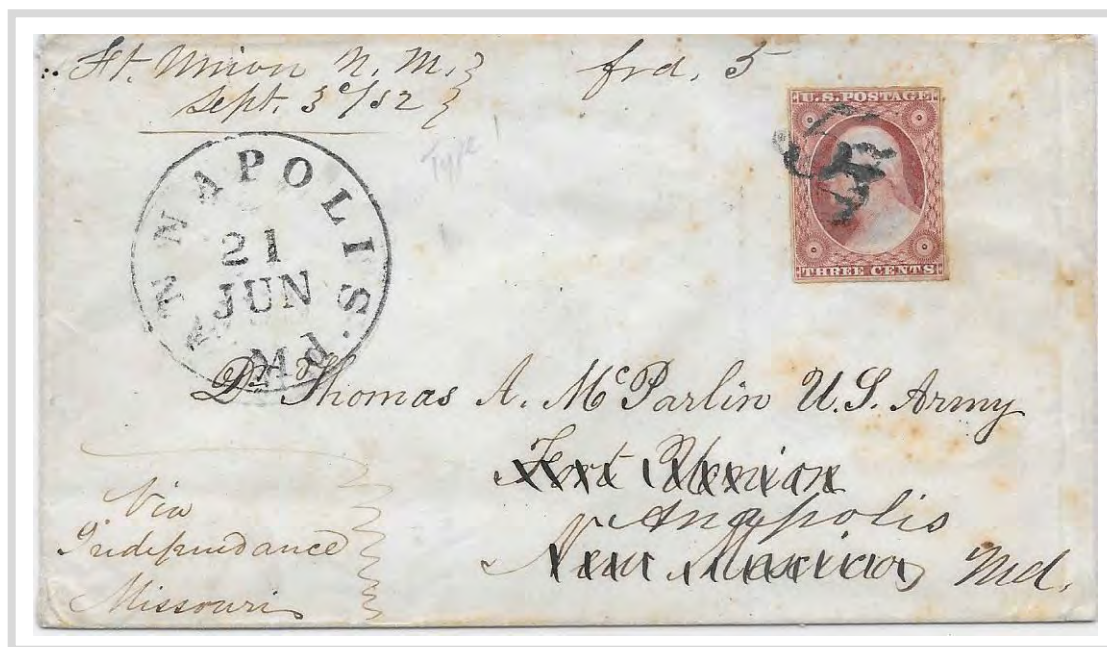 Ft. Union N. M.
Sept. 3º/52
frd. 5
U.S. POSTAGE
THREE CENTS
Type
ANNAPOLIS. Md.
21
JUN
Dr. Thomas A. McParlin U.S. Army
Fort Union
Anapolis
New Mexico Md.
Via
Independance
Missouri